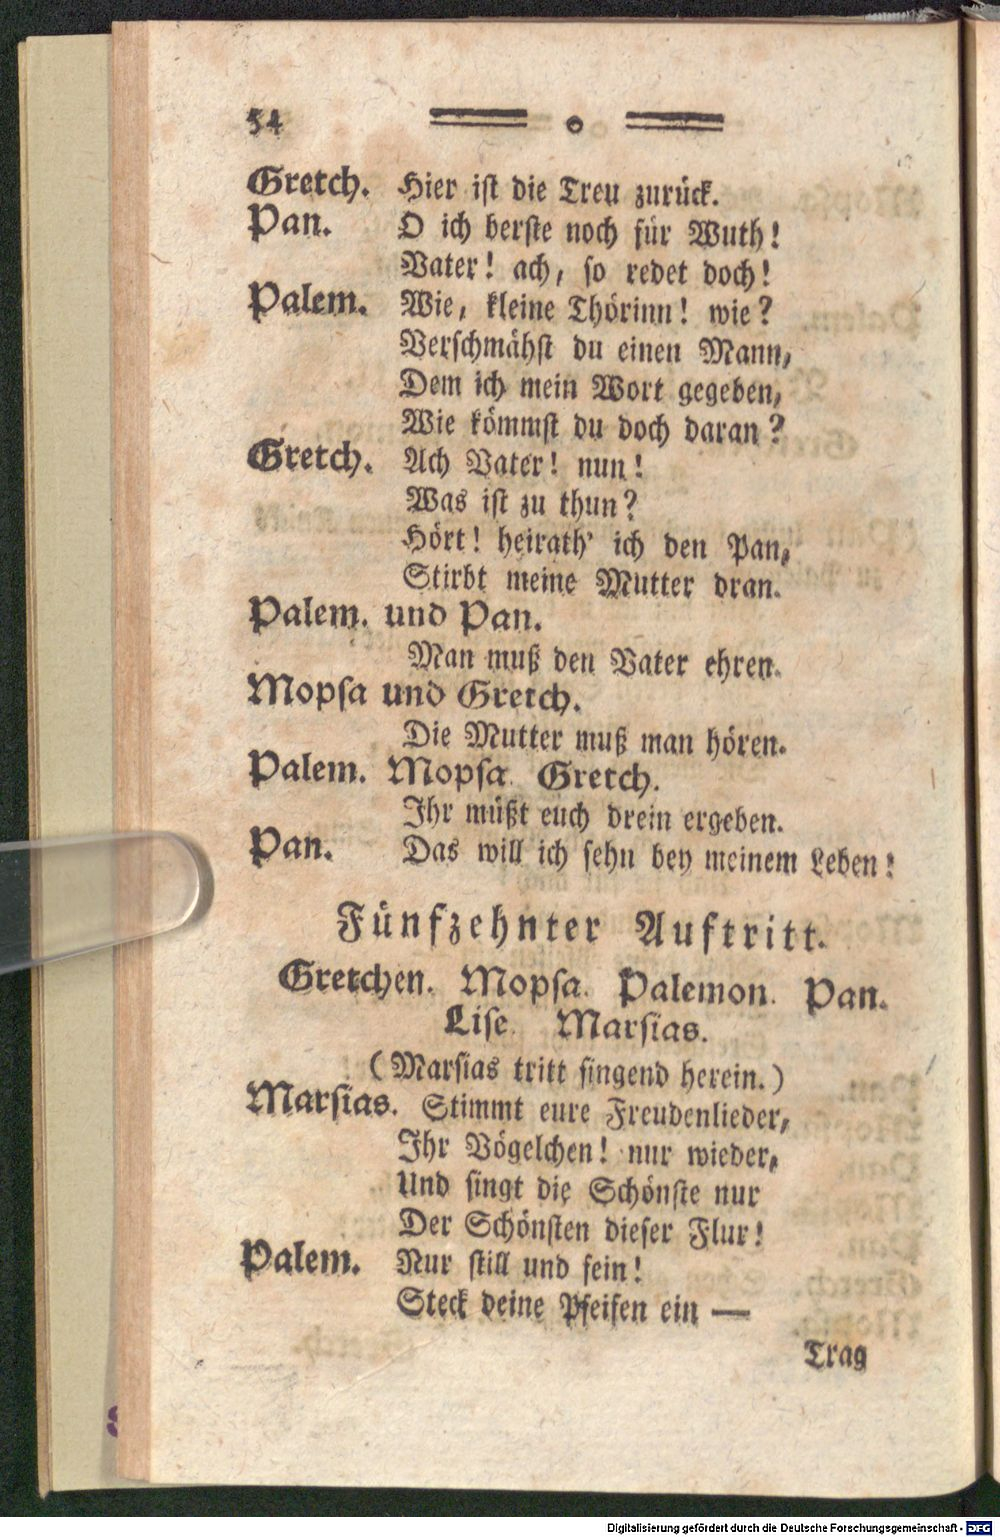 54
Gretch. Hier ist die Treu zurück.
Pan. O ich berste noch für Wuth!
Vater! ach, so redet doch!
Palem. Wie, kleine Thörinn! wie?
Verschmähst du einen Mann,
Dem ich mein Wort gegeben,
Wie kömmst du doch daran?
Gretch. Ach Vater! nun!
Was ist zu thun?
Hört! heirath' ich den Pan,
Stirbt meine Mutter dran.
Palem. und Pan.
Man muß den Vater ehren.
Mopsa und Gretch.
Die Mutter muß man hören.
Palem. Mopsa. Gretch.
Ihr müßt euch drein ergeben.
Pan. Das will ich sehn bey meinem Leben!
Fünfzehnter Auftritt.
Gretchen. Mopsa. Palemon. Pan.
Lise. Marsias.
(Marsias tritt singend herein.)
Marsias. Stimmt eure Freudenlieder,
Ihr Vögelchen! nur wieder,
Und singt die Schönste nur
Der Schönsten dieser Flur!
Palem. Nur still und fein!
Steck deine Pfeifen ein —
Trag
Digitalisierung gefördert durch die Deutsche Forschungsgemeinschaft - DFG